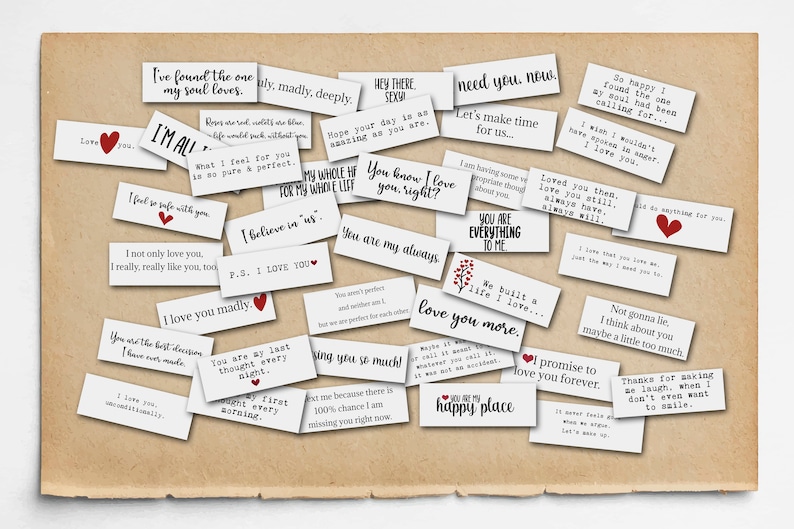 I've found the one
my soul loves.
uly, madly, deeply.
HEY THERE,
SEXY!
need you, now.
So happy I
found the one
my soul had been
calling for...
Love you.
I'M ALL I
Roses are red, violets are blue,
life would suck, without you.
Hope your day is as
amazing as you are.
Let's make time
for us...
I wish I wouldn't
have spoken in anger.
I love you.
What I feel for you
is so pure & perfect.
MY WHOLE HE
FOR MY WHOLE LIFE
You know I love
you, right?
I am having some ve
propriate though
about you.
Loved you then,
love you still.
always have,
always will.
ld do anything for you.
I feel so safe with you.
I believe in "us".
You are my always.
YOU ARE
EVERYTHING
TO ME.
I love that you love me,
just the way I need you to.
I not only love you,
I really, really like you, too.
P.S. I LOVE YOU
We built a
life I love...
I love you madly.
You aren't perfect
and neither am I,
but we are perfect for each other.
love you more.
Not gonna lie,
I think about you
maybe a little too much.
You are the best decision
I have ever made.
You are my last
thought every
night.
sing you so much!
Maybe it wa
or call it meant to
whatever you call it,
it was not an accident.
I promise to
love you forever.
Thanks for making
me laugh, when I
don't even want
to smile.
I love you,
unconditionally.
my first
ought every
morning.
ext me because there is
100% chance I am
missing you right now.
YOU ARE MY
happy place
It never feels goo
when we argue.
Let's make up.